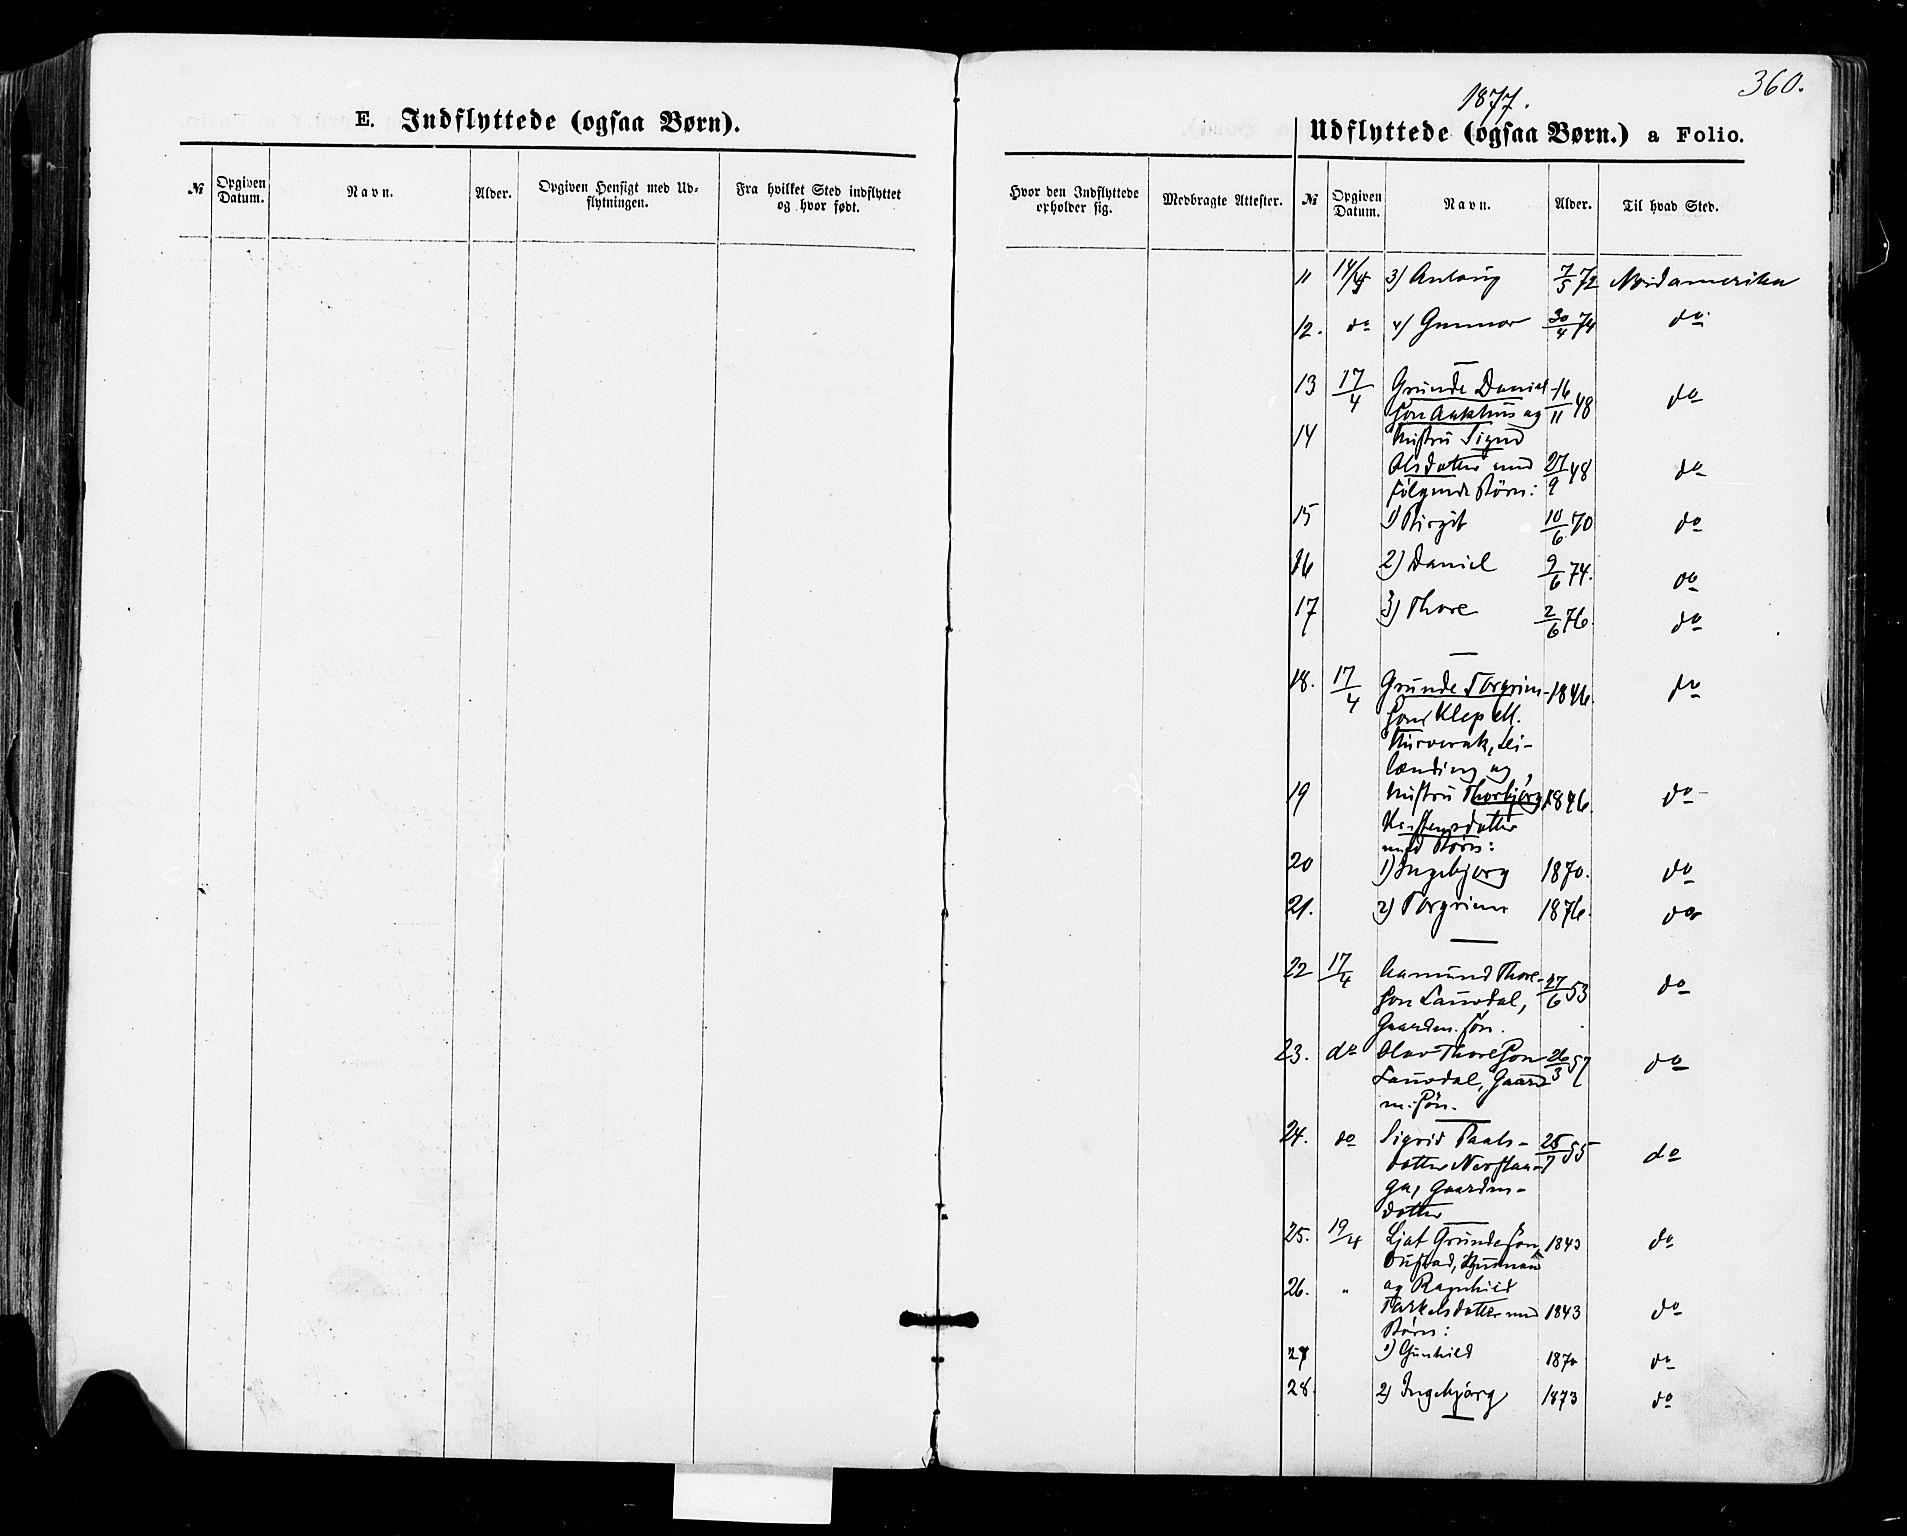 360.
1877.
E. Indflyttede (ogsaa Børn).
Udflyttede (ogsaa Børn.) a Folio.
№ Opgiven Datum. Navn. Alder. Opgiven Hensigt med Udflytningen. Fra hvilket Sted indflyttet og hvor født.
Hvor den Indflyttede opholder sig. Medbragte Attester. № Opgiven Datum. Navn. Alder. Til hvad Sted.
11 14/4 3) Anlaug 7/5 72 Nordamerika
12. do 4) Gunnar 30/4 74 do
13 17/4 Grunde Daniel- 16/11 48 do
son Aakhus og
14 Hustru Signe
Olsdatter med 27/9 48 do
følgende Børn:
15 1) Birgit 10/6 70 do
16 2) Daniel 9/6 74. do
17 3) Thore 2/6 76. do
18. 17/4 Grunde Torgrim- 1846. do
son Klep
lænding og
19 Hustru Thorbjørg 1846. do
datter
med Børn:
20 1) Ingebjørg 1870. do
21. 2) Torgrim 1876. do
22 17/4 Aamund Thore- 27/6 53 do
son Lauvdal,
Gaardm. søn.
23. do Olav Thoreson 26/3 57 do
Lauvdal, Gaard
m. søn.
24. do Sigrid Paals- 25/7 55 do
datter Nerstau-
ga, Gaardm-
datter
25. 19/4 Ljot Grundeson 1843 do
26. " og Ragnhild
Tarkelsdatter med 1843 do
Børn:
27 1) Gunhild 1870 do
28. 2) Ingebjørg 1873 do